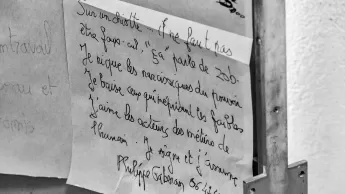 Sur un chiotte... il ne faut pas
être faux-cul. "ça" parle de zob
Je nique les narcissiques du pouvoir
Je baise ceux qui méprisent les faibles
J'aime les acteurs des métiers de
l'humain. Je signe et j'assume
Philippe
travail
et